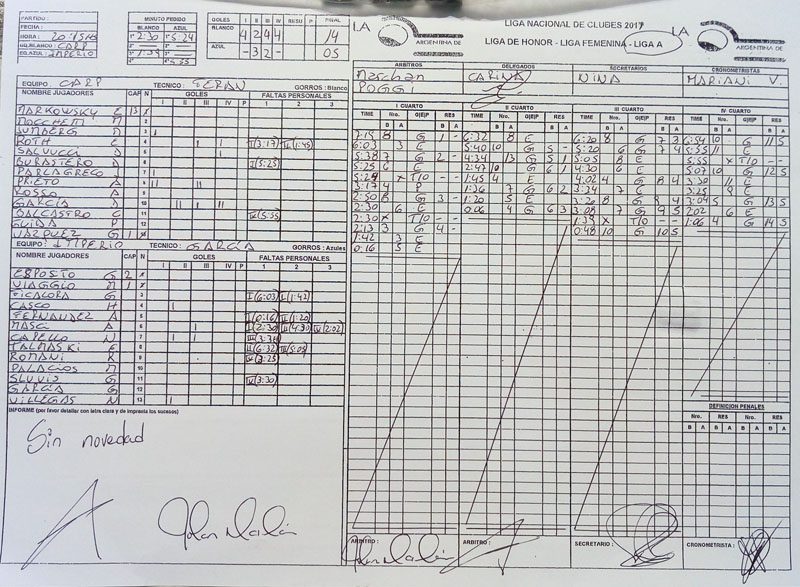 PARTIDO :
FECHA :
HORA : 20:15 HS
EQ. BLANCO : CARP
EQ. AZUL : IMPERIO
MINUTO PEDIDO
BLANCO AZUL
1° 2:30 1° 5:24
GOLES I II III IV RESU P FINAL
BLANCO 4 2 4 4 14
AZUL - 3 2 - 05
LIGA NACIONAL DE CLUBES 2017
LIGA DE HONOR - LIGA FEMENINA - LIGA A
LA ARGENTINA DE
LA ARGENTINA DE
ARBITROS DELEGADOS SECRETARIOS CRONOMETRISTAS
CARINA NINA MARIANI V.
POGGI
EQUIPO : CARP TECNICO : GORROS : Blanco
NOMBRE JUGADORES CAP N GOLES FALTAS PERSONALES
I II III IV P 1 2 3
MARKOWSKY E 13 1
MOCCHETTI M 2
3
ROTH E 4 II (3:17) IV (1:45)
SALVUCCI D 5
BURASTERO D 6 II (5:25)
PARLAGRECO J 7
PRIETO A 8
ROSSO A 9
GARCÍA D 10
DALCASTRO C 11 IV (5:55)
GUIDA P 12
VAZQUEZ G 13
EQUIPO : IMPERIO TECNICO : GARCÍA GORROS : Azules
NOMBRE JUGADORES CAP N GOLES FALTAS PERSONALES
I II III IV P 1 2 3
ESPOSTO G 2 1
VIAGGIO M 1 2
FICALORA G 3 I (6:03) I (1:42)
CASCO H 4
FERNANDEZ A 5 I (0:16) II (1:20)
MASCI A 6 I (2:30) III (4:30) IV (2:02)
CAPELLO N 7
TALMASKI E 8 II (6:32) III (5:05)
ROMANI K 9 IV (3:25)
PALACIOS M 10
SLUVIS G 11 IV (3:30)
GARCÍA G 12
VILLEGAS M 13
INFORME (por favor detallar con letra clara y de imprenta los sucesos)
Sin novedad
I CUARTO II CUARTO III CUARTO IV CUARTO
TIME Nro. G|E|P RES TIME Nro. G|E|P RES TIME Nro. G|E|P RES TIME Nro. G|E|P RES
B A B A B A B A B A B A B A B A
7:15 8 G 1 - 6:32 8 E 6:20 8 G 7 3 6:54 10 G 11 5
6:03 3 E 5:40 10 G 5 - 5:20 6 G 7 4 5:55 11
5:38 7 G 2 - 4:34 13 G 5 1 5:05 8 E 5:55 x T/O - -
5:25 6 E 2:47 10 G 6 1 4:30 6 E 5:07 10 G 12 5
5:24 x T/O - - 1:45 4 E 4:02 4 G 8 4 3:30 11 E
3:17 4 P 1:36 7 G 6 2 3:34 7 E 3:25 9 E
2:50 8 G 3 - 1:20 5 E 3:20 8 G 9 4 3:04 5 G 13 5
2:30 6 E 0:06 4 G 6 3 3:08 7 G 9 5 2:02 6 E
2:30 x T/O - - 1:39 x T/O - - 1:06 4 G 14 5
2:13 3 G 4 - 0:48 10 G 10 5
1:42 3 E
0:16 5 E
DEFINICION PENALES
Nro. RES Nro. RES
B A B A B A B A
ARBITRO : ARBITRO : SECRETARIO : CRONOMETRISTA :